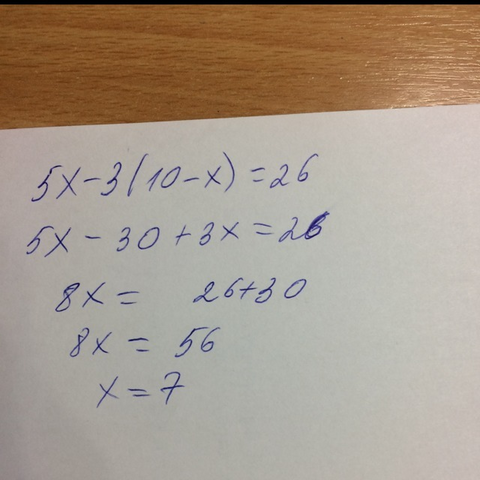 5x-3(10-x)=26
5x-30+3x=26
8x= 26+30
8x=56
x=7